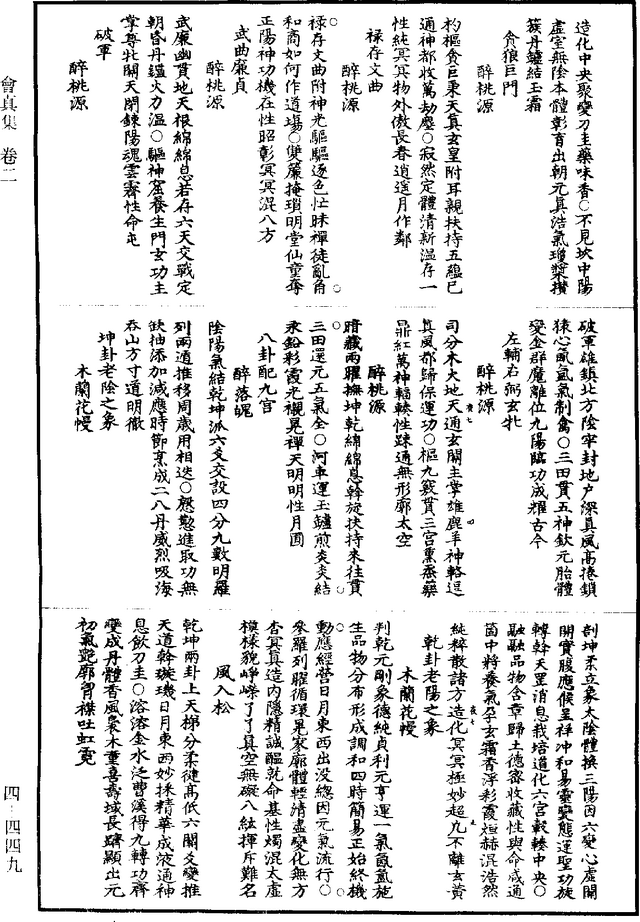 造化中央聚變刀圭藥味香○不見坎中陽
虛室無陰本體彰育出朝元真浩氣瓊漿攢
簇丹罏結玉霜
貪狼巨門
醉桃源
杓樞貪巨秉天真玄皇附耳親扶持五蘊已
通神都收萬劫塵○寂然定體清新温存一
性純冥冥物外傲長春逍遥月作鄰
禄存文曲
醉桃源
禄存文曲附神光驅驅逐色忙昧禪徒亂角
和商如何作道場○雙簾掩瑣明堂仙童奪
正陽神功機在性昭彰冥冥混八方
武曲廉貞
醉桃源
武廉幽貫地天根綿綿息若存六天交戰定
朝昏丹罏火力温○驅神窟養生門玄功主
掌尊牝關天閉鍊陽魂雲霽性命屯
破軍
醉桃源
破軍雄鎮北方陰牢封地户深真風高捲鎖
猿心氤氳氣制禽○三田貫五神欽元胎體
變金群魔離位九陽臨功成耀古今
左輔右弼玄牝
醉桃源
司分木火地天通玄關主掌雄鹿羊神輅逞
真風都歸保運功○樞九竅貫三宫熏蒸藥
鼎紅萬神輻輳性疎通無形廓太空
醉桃源
暗藏兩曜撫坤乾綿綿息斡旋扶持來往貫
三田還元五氣全○河車運玉罏煎炎炎結
汞鉛彩霞光襯晃禪天明明性月圓
八卦配九宫
醉落魄
陰陽氣結乾坤派六爻交設四分九數明羅
列兩道推移周歲用相迭○慇懃進取功無
缺抽添加減應時節烹成二八丹威烈吸海
吞山方寸道明徹
坤卦老陰之象
木蘭花慢
剖坤柔立象太陰體換三陽因六變心虛開
開寶腹應候呈祥冲和易靈變態運聖功旋
轉斡天罡消息栽培道化六宫轂輳中央○
融融品物含章歸土德密收藏性與命咸通
箇中將養氣孕玄霜香浮彩霞烜赫混浩然
純粹散諸方造化冥冥極妙超凢不離玄黄
乾卦老陽之象
木蘭花慢
判乾元剛象德純貞利元亨運一氣氤氲施
生品物分布形成調和四時簡易正始終機
動應經營日月東西出没總因元氣流行○
參羅列曜循環晃家廓體輕清盡變化無方
杳冥真造内隱精誠醖就命基性燭混太虚
模樣貌崢嶸了了真空無礙八紘揮斥難名
風入松
乾坤兩卦上天梯分柔健高低六關爻變推
天道斡璇璣日月東西妙採精華成液通神
息飲刀圭○溶溶金水泛曹溪得九轉功齊
變成丹體香風裊木重喜壽域長躋顯出元
初氣䰟廓胷襟吐虹霓
會真集 卷二
四-四四九